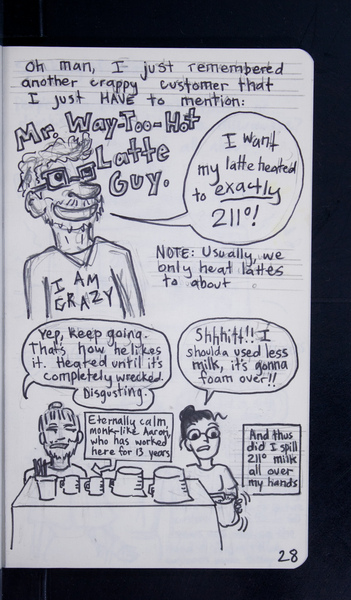 Oh man, I just remembered
another crappy customer that
I just HAVE to mention:
Mr. Way-Too-Hot
Latte
Guy.
I want
my latte heated
to exactly
211°!
I AM
CRAZY
NOTE: Usually, we
only heat lattes
to about
Yep, keep going.
That's how he likes
it. Heated until it's
completely wrecked.
Disgusting.
Shhhitt!! I
shoulda used less
milk, it's gonna
foam over!!
Eternally calm,
monk-like Aaron,
who has worked
here for 13 years
And thus
did I spill
211° milk
all over
my hands
28